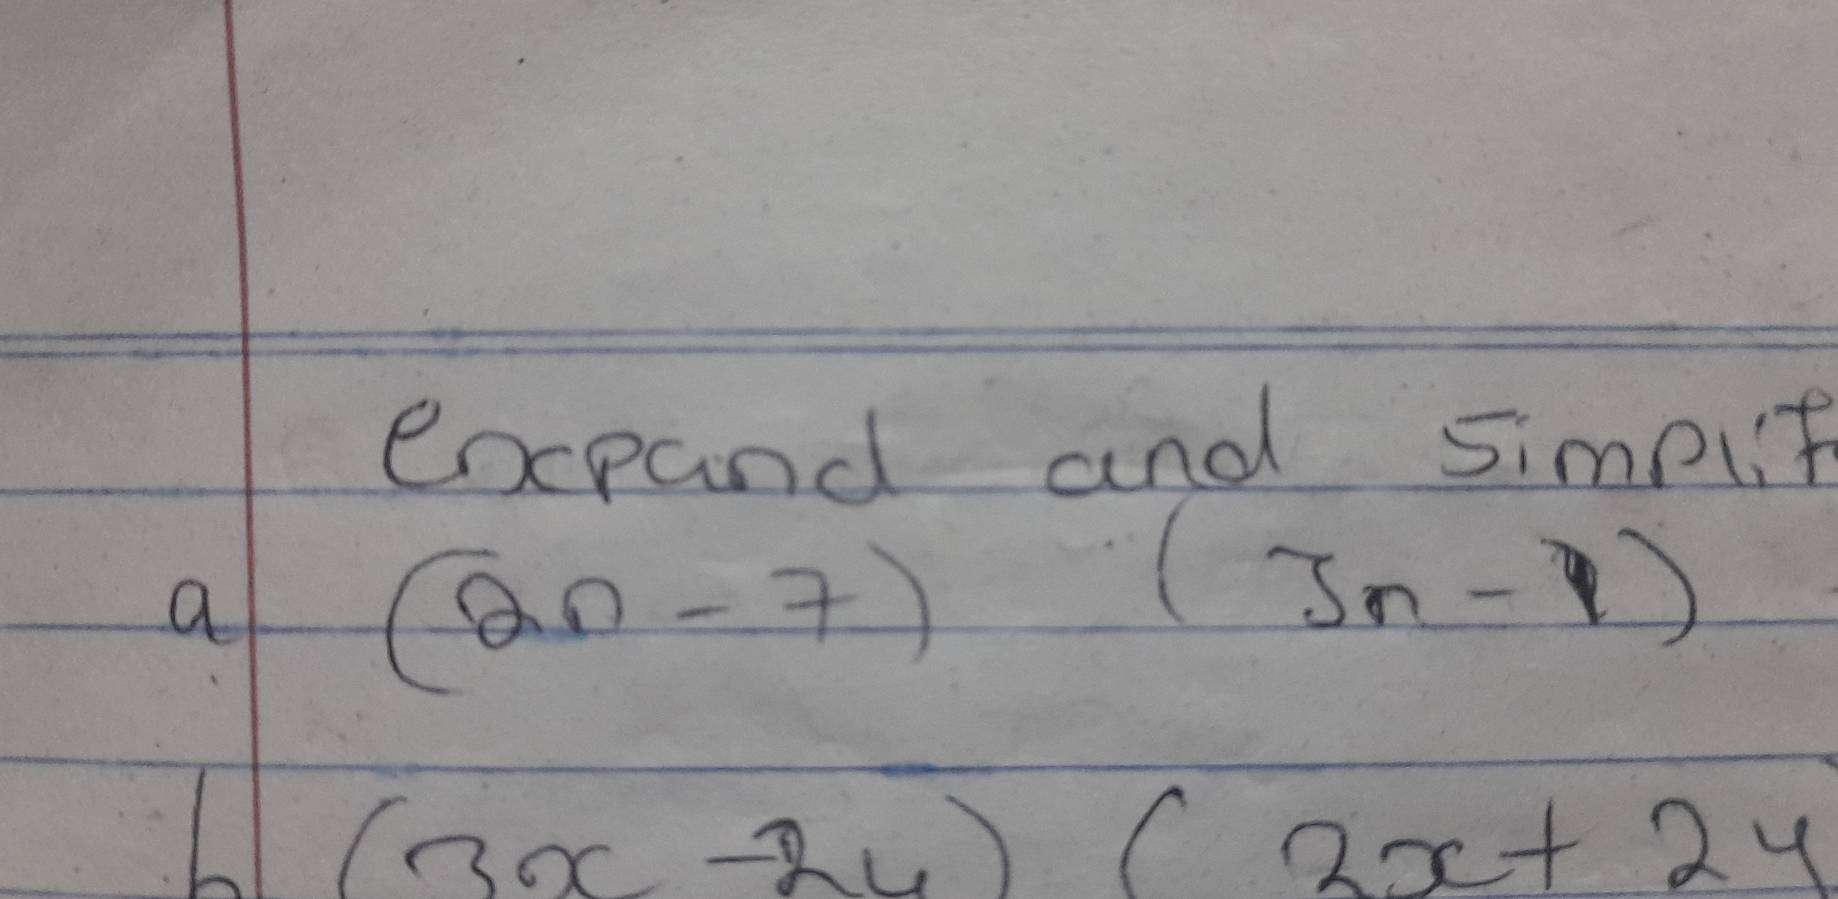 expand and simplif
a (2n - 7) (3n - 1)
b (3x - 2y) (2x + 2y